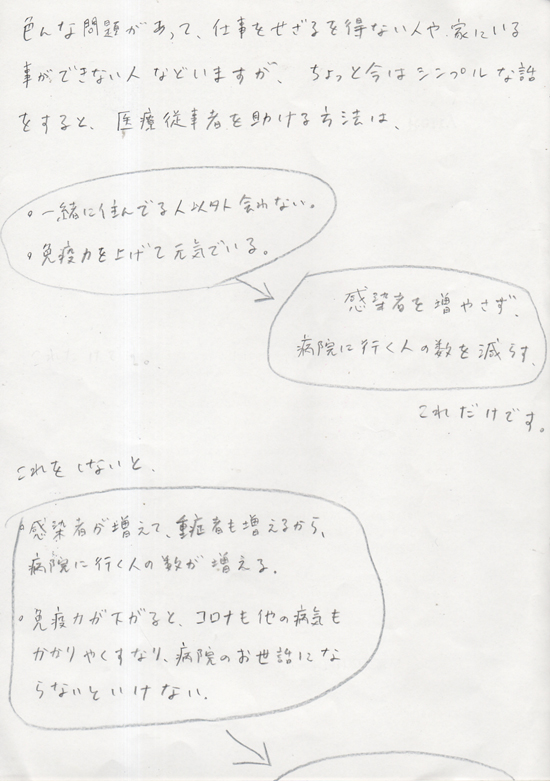 色んな問題があって、仕事をせざるを得ない人や家にいる
事ができない人などいますが、ちょっと今はシンプルな話
をすると、医療従事者を助ける方法は、
。一緒に住んでる人以外会わない。
・免疫力を上げて元気でいる。
感染者を増やさず、
病院に行く人の数を減らす、
これだけです。
これをしないと、
。感染者が増えて、重症者も増えるから、
病院に行く人の数が増える。
。免疫力が下がると、コロナも他の病気も
かかりやくすなり、病院のお世話にな
らないといけない.